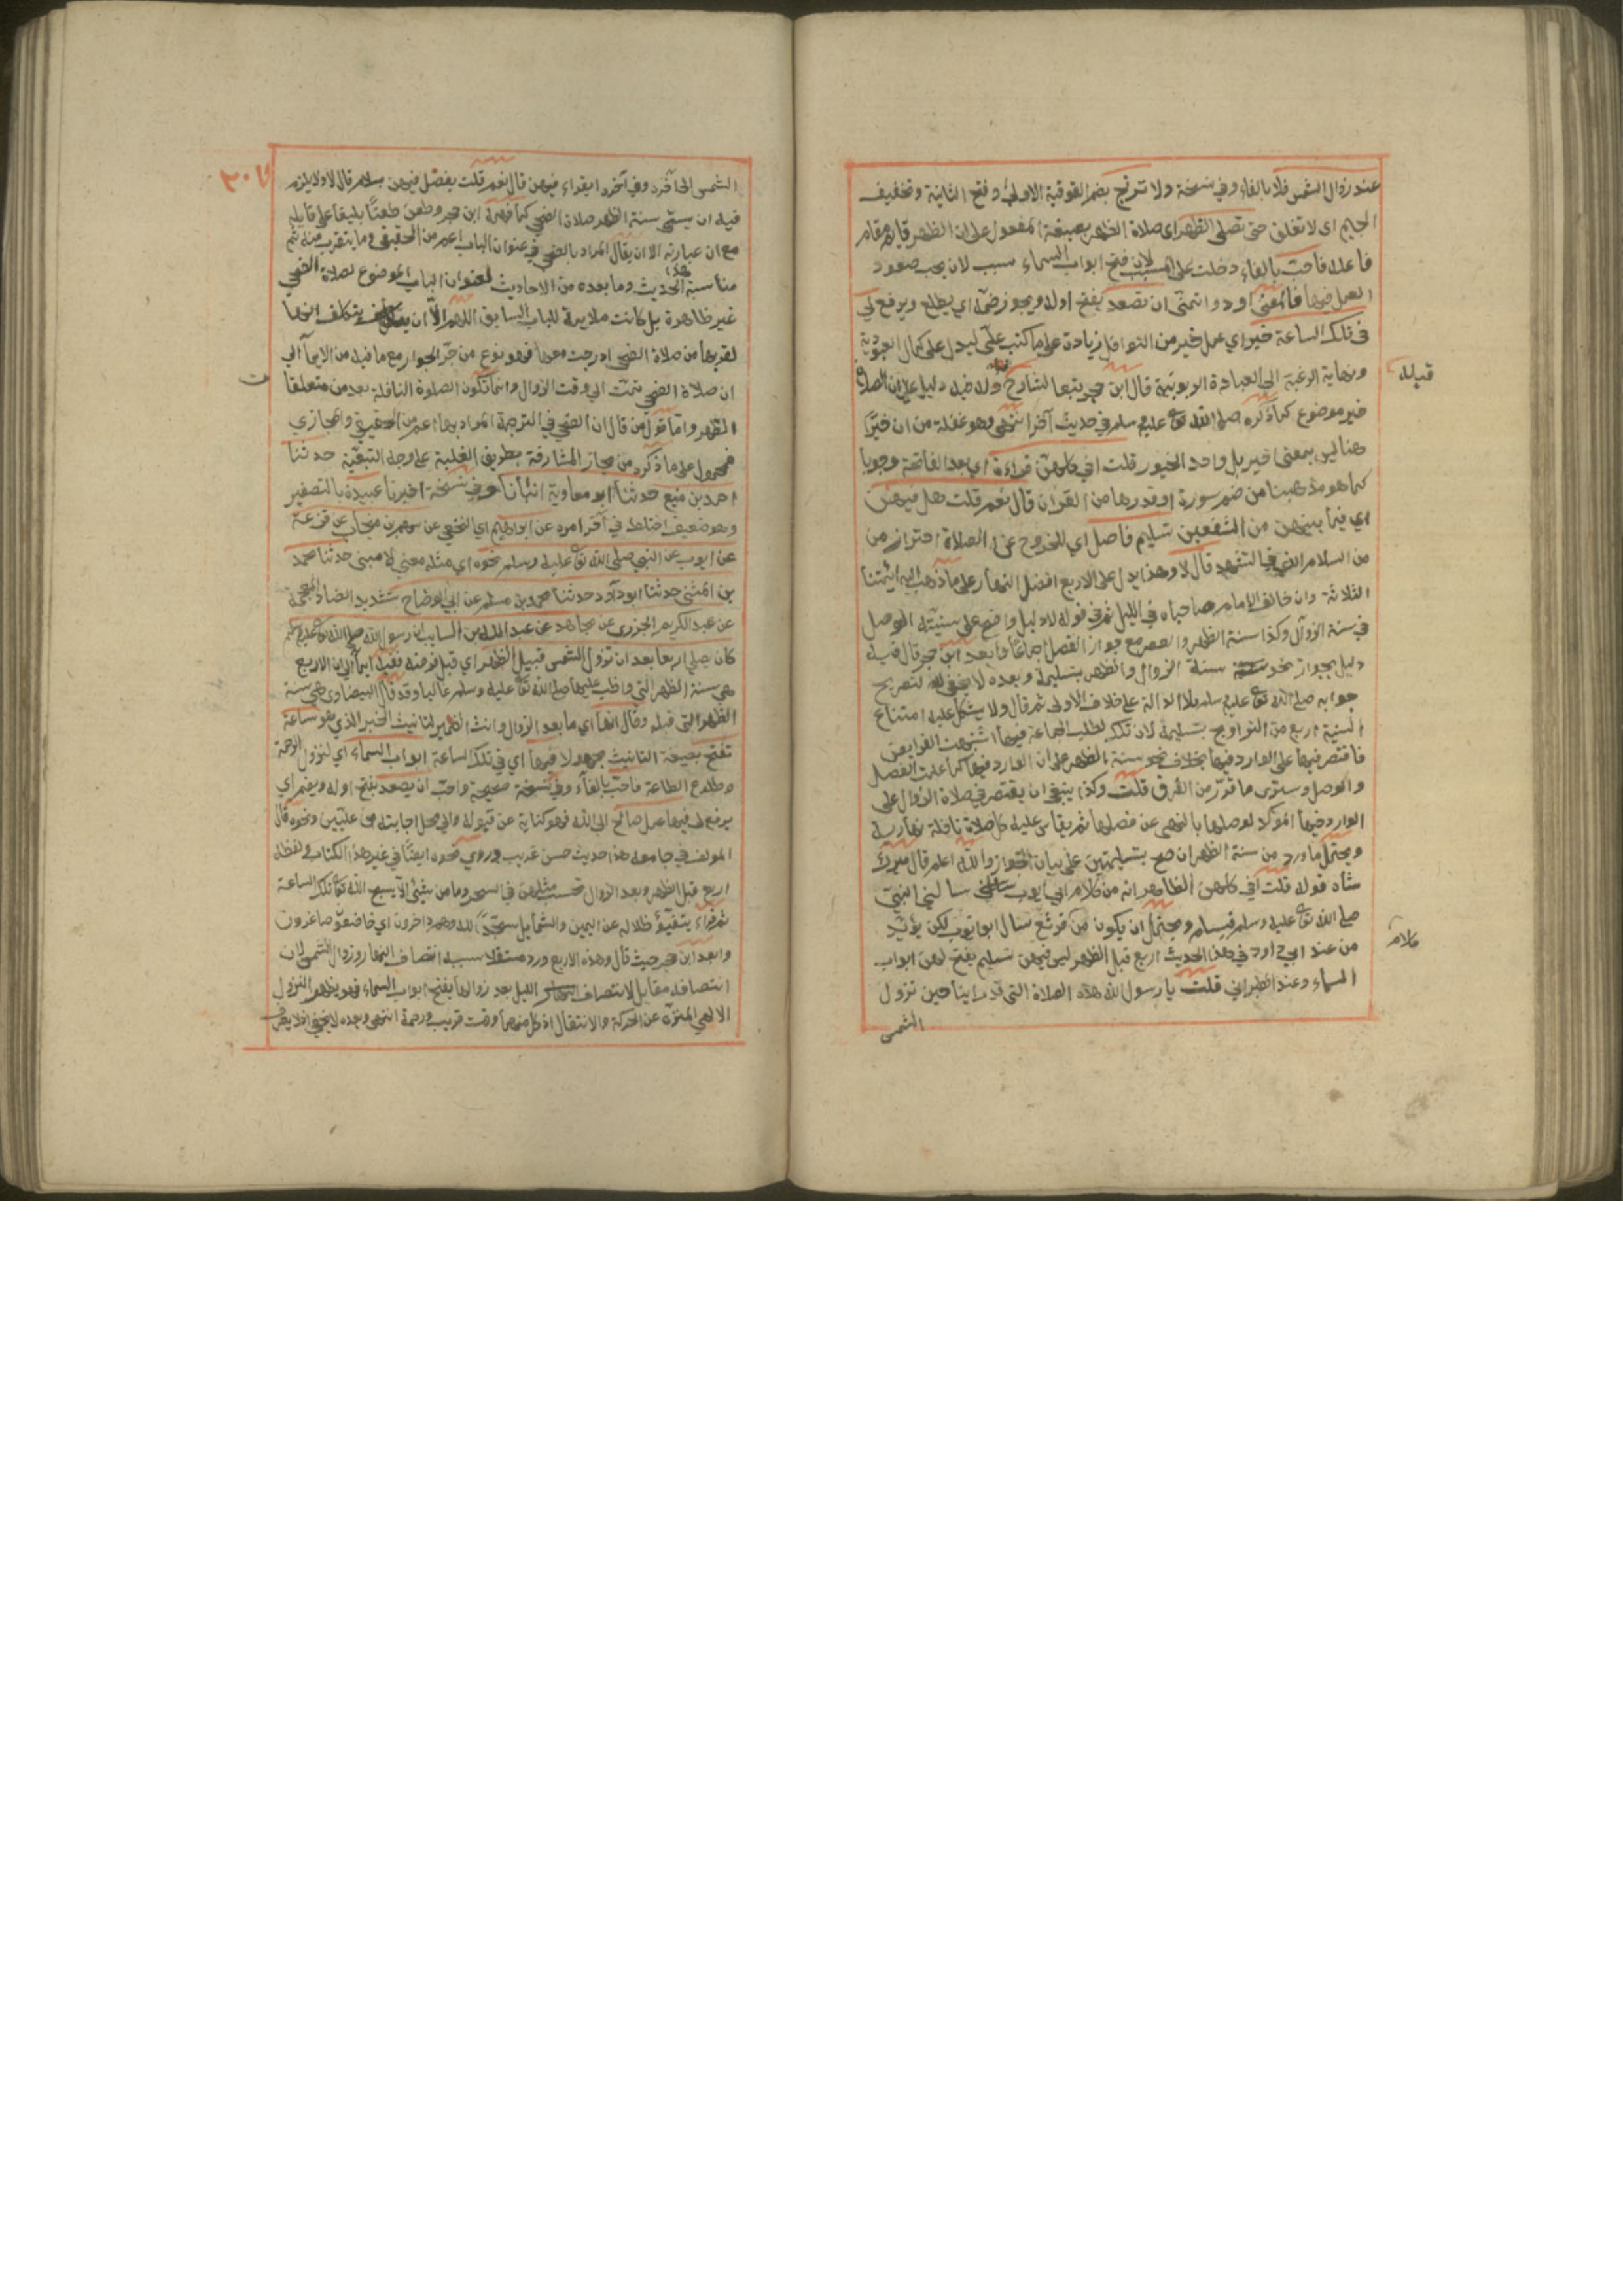 عند زوال الشمس فلا بالفاء وفي نسخة ولا ترتج بضم الفوقية الاولى وفتح الثانية وتخفيف
الجيم اى لا تغلق حتى تصلى الظهر اى صلاة الظهر بصيغة المفعول على ان الظهر قايم مقام
فاعله فاحب بالفاء دخلت على المسبب لان فتح ابواب السماء سبب لان يحب صعود
العمل فيها فالمعنى اود واتمنى ان تصعد بفتح اوله ويجوز ضمه اي يطلع ويرفع لي
في تلك الساعة خير اي عمل خير من النوافل زيادة على ما كتب علي ليدل على كمال العبودية
ونهاية الرغبة الى العبادة الربوبية قال ابن حجر تبعا لشارح وله فيه دليل على ان الصلاة
خير موضوع كما ذكره صلى الله تع عليه وسلم في حديث آخر انتهى وهو غفلة من ان خيرا
هنا ليس بمعنى اخير بل واحد الخيور قلت افي كلهن قراءة اي بعد الفاتحة وجوبا
كما هو مذهبنا من ضم سورة او قدرها من القرآن قال نعم قلت هل فيهن
اي فيما بينهن من الشفعين تسليم فاصل اي للخروج عن الصلاة احتراز من
من السلام الذي في التشهد قال لا وهذا يدل على الاربع افضل النهار على ما ذهب اليه ائمتنا
الثلاثة وان خالف الامام صاحباه في الليل ثم في قوله لا دليل واضح على سنية الوصل
في سنة الزوال وكذا سنة الظهر والعصر مع جواز الفصل اجماعا وابعد ابن حجر قال فيه
دليل بجواز نحو سنة الزوال والظهر بتسليمة وبعده لا يخفى لتصريح
جوابه صلى الله تع عليه وسلم بلا الدالة على خلاف الاولى ثم قال ولا يشكل عليه امتناع
السنية اربع من التراويح بتسليمة لان تلك لطلب الجماعة فيها اشبهت الفرايض
فاقتصر فيها على الوارد فيها بخلاف نحو سنة الظهر على ان الوارد فيها كما علمت الفصل
والوصل وسترى ما قدر من الفرق قلت وكذا ينبغي ان يقتصر في صلاة الزوال على
الوارد فيها المؤكد لوصلها بالنهي عن فصلها ثم يقاس عليه كل صلاة نافلة نهارية
ويحتمل ما ورد من سنة الظهر ان صح بتسليمتين على بيان الجواز والله اعلم قال ميرك
شاه قوله قلت افي كلهن الظاهر انه من كلام ابي ايوب سالني النبي
صلى الله تع عليه وسلم فيسلم ويحتمل ان يكون من قرثع سال ابو ايوب لكن يؤيد
من عند ابي داود في هذا الحديث اربع قبل الظهر ليس فيهن تسليم يفتح لهن ابواب
السماء وعند الطبراني قلت يا رسول الله هذه الصلاة التي قد راينا حين تزول
الشمس
الشمس الى آخره وفي آخره ايقراء فيهن قال نعم قلت يفصل فيهن بسلام قال لا ولا يلزم
فيه ان يسمى سنة الظهر صلاة الضحى كما فهمه ابن حجر وطعن طعنا بليغا على قايله
مع ان عبارته الا ان يقال المراد بالضحى في عنوان الباب اعم من الحقيقي وما يتقرب منه ثم
مناسبة هذا الحديث وما بعده من الاحاديث لعنوان الباب الموضوع لصلاة الضحى
غير ظاهرة بل كانت ملايمة للباب السابق اللهم الا ان يتكلف انها
لقربها من صلاة الضحى ادرجت معها فهو نوع من جر الجوار مع ما فيه من الايماء الى
ان صلاة الضحى تمت الى وقت الزوال وانما تكون الصلوة النافلة بعد من متعلقا
الظهر واما قول من قال ان الضحى في الترجمة المراد بها اعم من الحقيقي والمجازي
فمحمول على ما ذكره من مجاز المشارفة بطريق الغلبة على وجه التبعية حدثنا
احمد بن منيع حدثنا ابو معاوية انبانا وفي نسخة اخبرنا عبيدة بالتصغير
وهو ضعيف اختلط في آخر امره عن ابراهيم اي النخعي عن سهم بن منجاب عن قزعة
عن ايوب عن النبي صلى الله تع عليه وسلم نحوه اي مثله معنى لا مبنى حدثنا محمد
بن المثنى حدثنا ابو داود حدثنا محمد بن مسلم عن ابي الوضاح بتشديد الضاد المعجمة
عن عبد الكريم الجزري عن مجاهد عن عبد الله بن السايب ان رسول الله صلى الله تع عليه وسلم
كان يصلي اربعا بعد ان تزول الشمس قبيل الظهر اي قبل فرضه ففيه ايماء الى ان الاربع
هي سنة الظهر التي واظب عليها صلى الله تع عليه وسلم غالبا وقد قال البيضاوي هي سنة
الظهر التي قبله وقال انها اي ما بعد الزوال وانث الضمير لتانيث الخبر الذي هو ساعة
تفتح بصيغة التانيث مجهولا فيها اي في تلك الساعة ابواب السماء اي لنزول الرحمة
وطلوع الطاعة فاحب بالفاء وفي نسخة صحيحة واحب ان يصعد بفتح اوله ويضم اي
يرفع لي فيها عمل صالح الى الله فهو كناية عن قبوله والى محل اجابته من عليين ونحوه قال
المولف في جامعه هذا حديث حسن غريب وروي نحوه ايضا في غير هذا الكتاب ولفظه
اربع قبل الظهر وبعد الزوال تحسب بمثلهن في السحر وما من شيئ الا يسبح الله تع تلك الساعة
ثم قراء يتفيؤ ظلاله عن اليمين والشمايل سجدا لله وهم داخرون اي خاضعون صاغرون
وابعد ابن حجر حيث قال وهذه الاربع ورد مستقلا سببه انتصاف النهار وزوال الشمس لان
انتصافه مقابل لانتصاف الليل بعد زوالها يفتح ابواب السماء فهو يظهر النزول
الالهي المنزه عن الحركة والانتقال اذ كل منهما وقت قريب ورحمة انتهى وبعده لا يخفى اذ لا يعرف